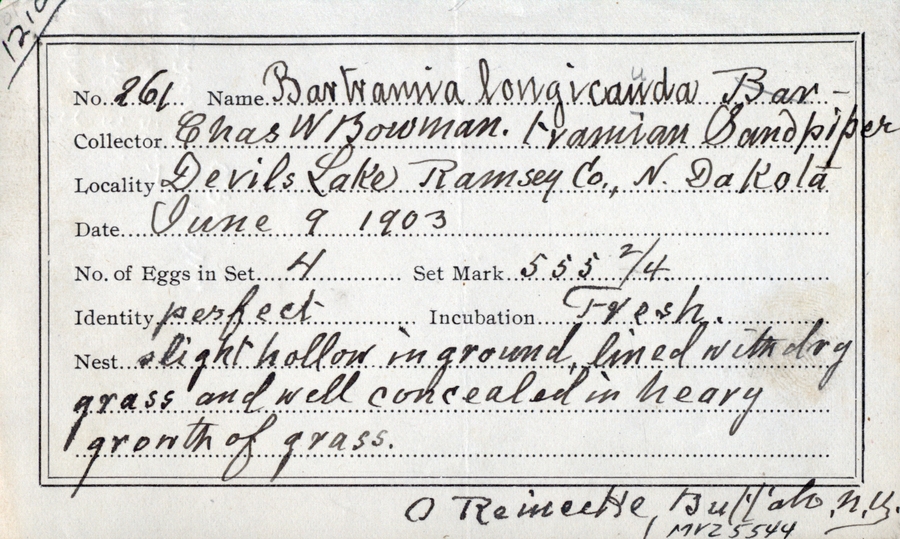 1210
No. 261 Name Bartramia longicauda Bar-
Collector Chas W Bowman. tramian Sandpiper
Locality Devils Lake Ramsey Co., N. Dakota
Date June 9 1903
No. of Eggs in Set 4 Set Mark 555 2/4
Identity perfect Incubation Fresh.
Nest slight hollow in ground, lined with dry
grass and well concealed in heavy
growth of grass.
O Reinecke, Buffalo, N.Y.
MVZ 5544